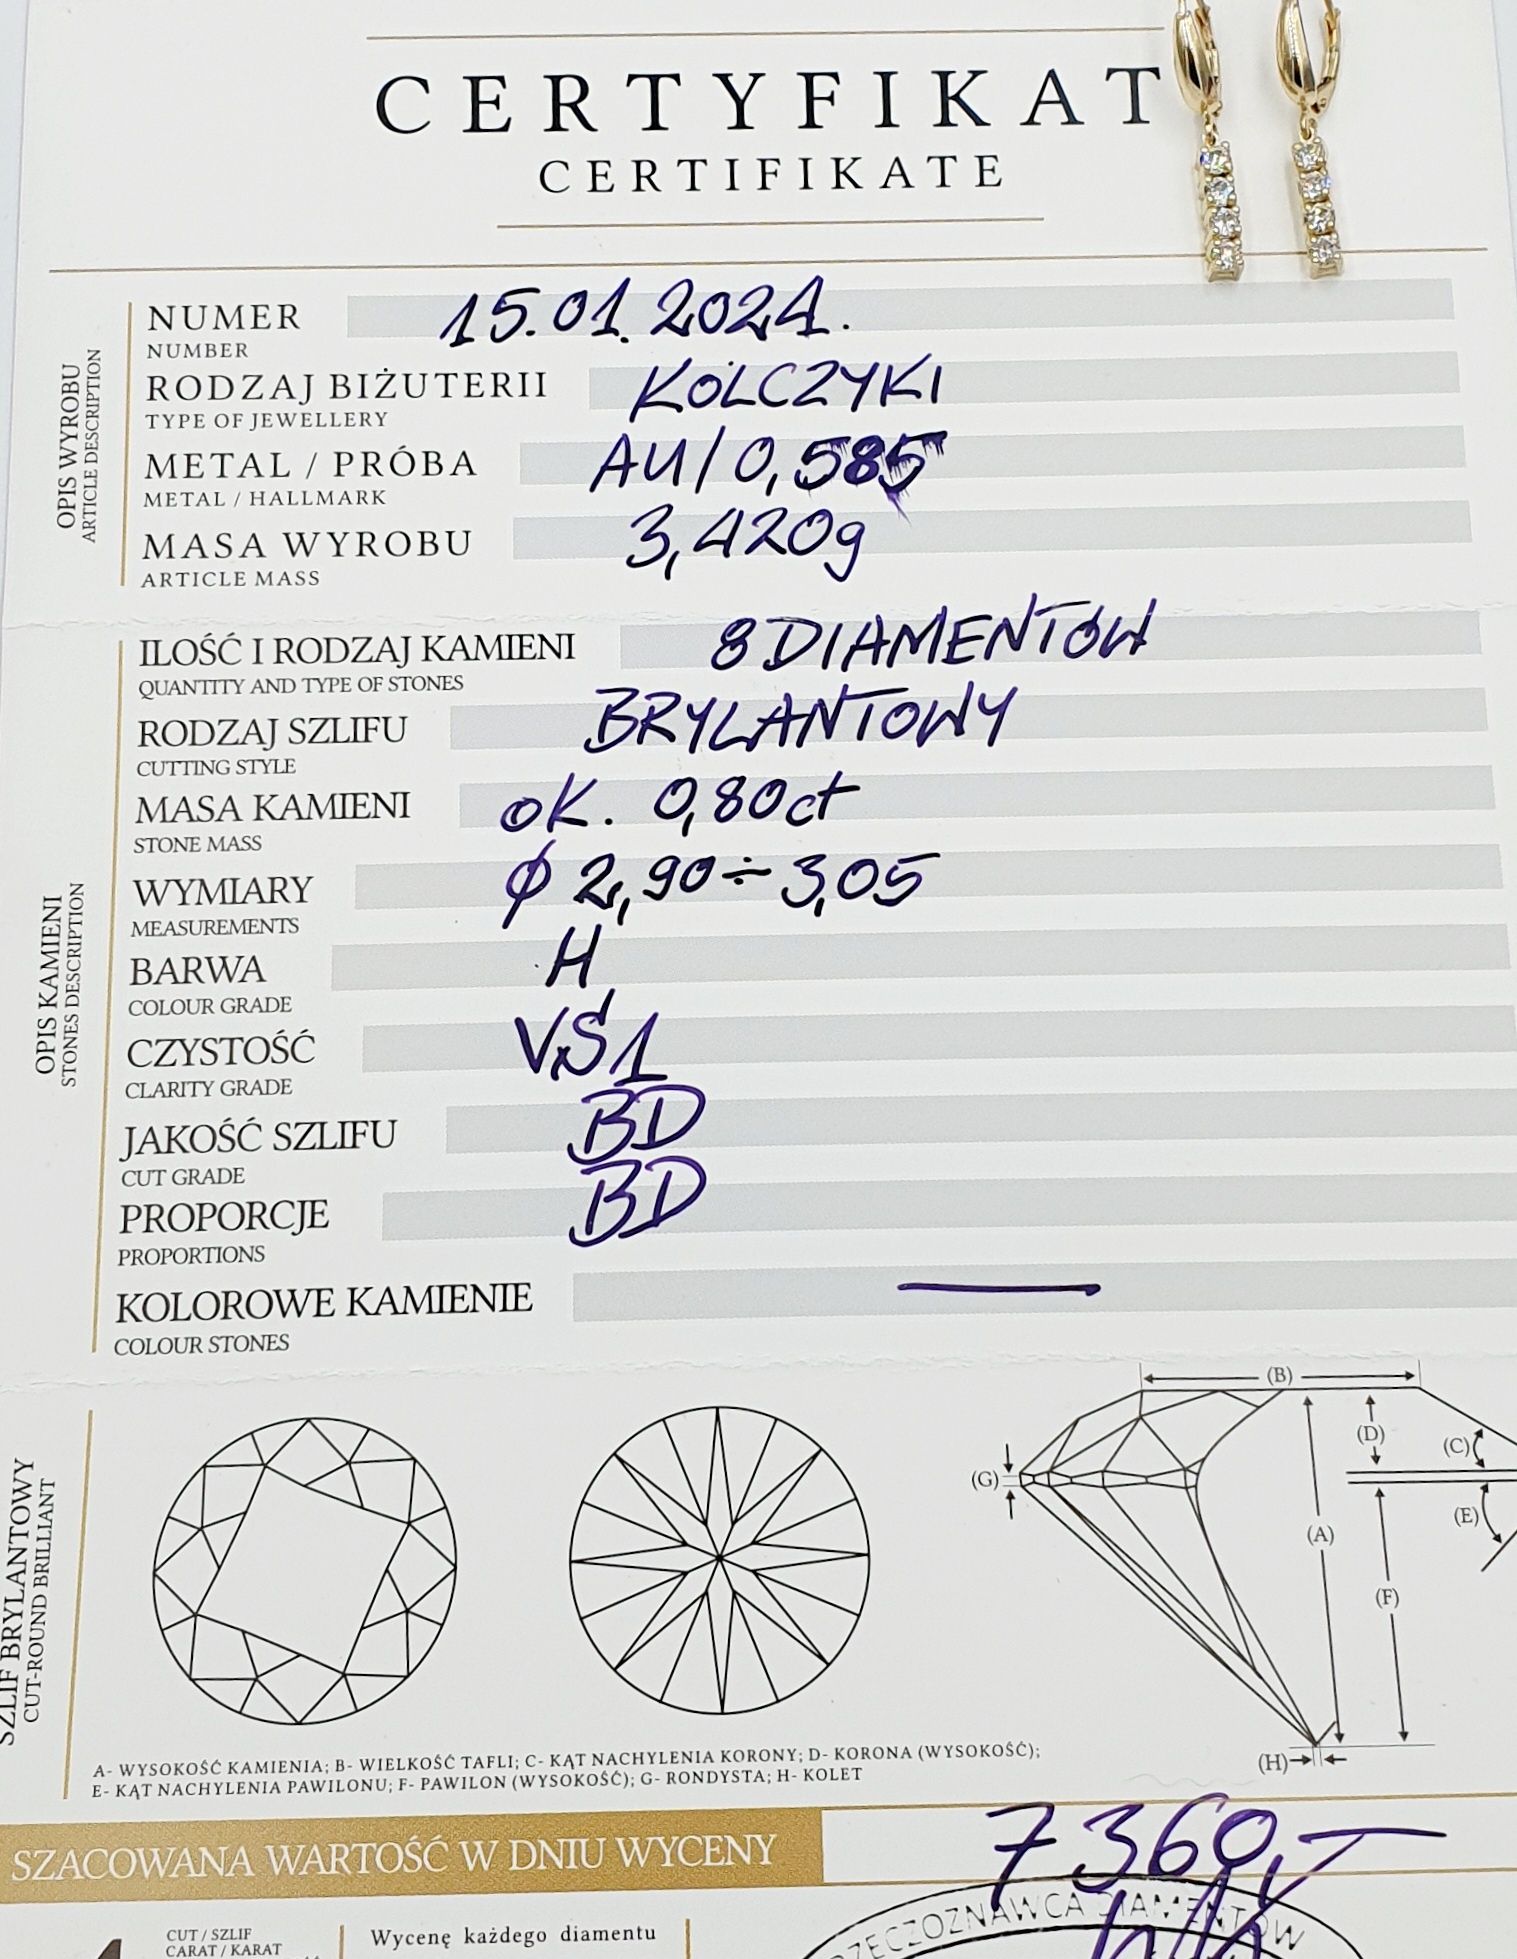 CERTYFIKAT
CERTIFIKATE
NUMER 15.01.2024.
NUMBER
RODZAJ BIŻUTERII KOLCZYKI
TYPE OF JEWELLERY
METAL / PRÓBA AU/0,585
METAL / HALLMARK
MASA WYROBU 3,420g
ARTICLE MASS
OPIS WYROBU
ARTICLE DESCRIPTION
ILOŚĆ I RODZAJ KAMIENI 8 DIAMENTÓW
QUANTITY AND TYPE OF STONES
RODZAJ SZLIFU BRYLANTOWY
CUTTING STYLE
MASA KAMIENI OK. 0,80ct
STONE MASS
WYMIARY ϕ 2,90÷3,05
MEASUREMENTS
BARWA H
COLOUR GRADE
CZYSTOŚĆ VS1
CLARITY GRADE
JAKOŚĆ SZLIFU BD
CUT GRADE
PROPORCJE BD
PROPORTIONS
KOLOROWE KAMIENIE —
COLOUR STONES
OPIS KAMIENI
STONES DESCRIPTION
SZLIF BRYLANTOWY
CUT-ROUND BRILLIANT
(B)
(D)
(C)
(G)
(E)
(A)
(F)
(H)
A- WYSOKOŚĆ KAMIENIA; B- WIELKOŚĆ TAFLI; C- KĄT NACHYLENIA KORONY; D- KORONA (WYSOKOŚĆ);
E- KĄT NACHYLENIA PAWILONU; F- PAWILON (WYSOKOŚĆ); G- RONDYSTA; H- KOLET
SZACOWANA WARTOŚĆ W DNIU WYCENY 7360,-
RZECZOZNAWCA DIAMENTÓW
CUT / SZLIF
CARAT / KARAT
Wycenę każdego diamentu